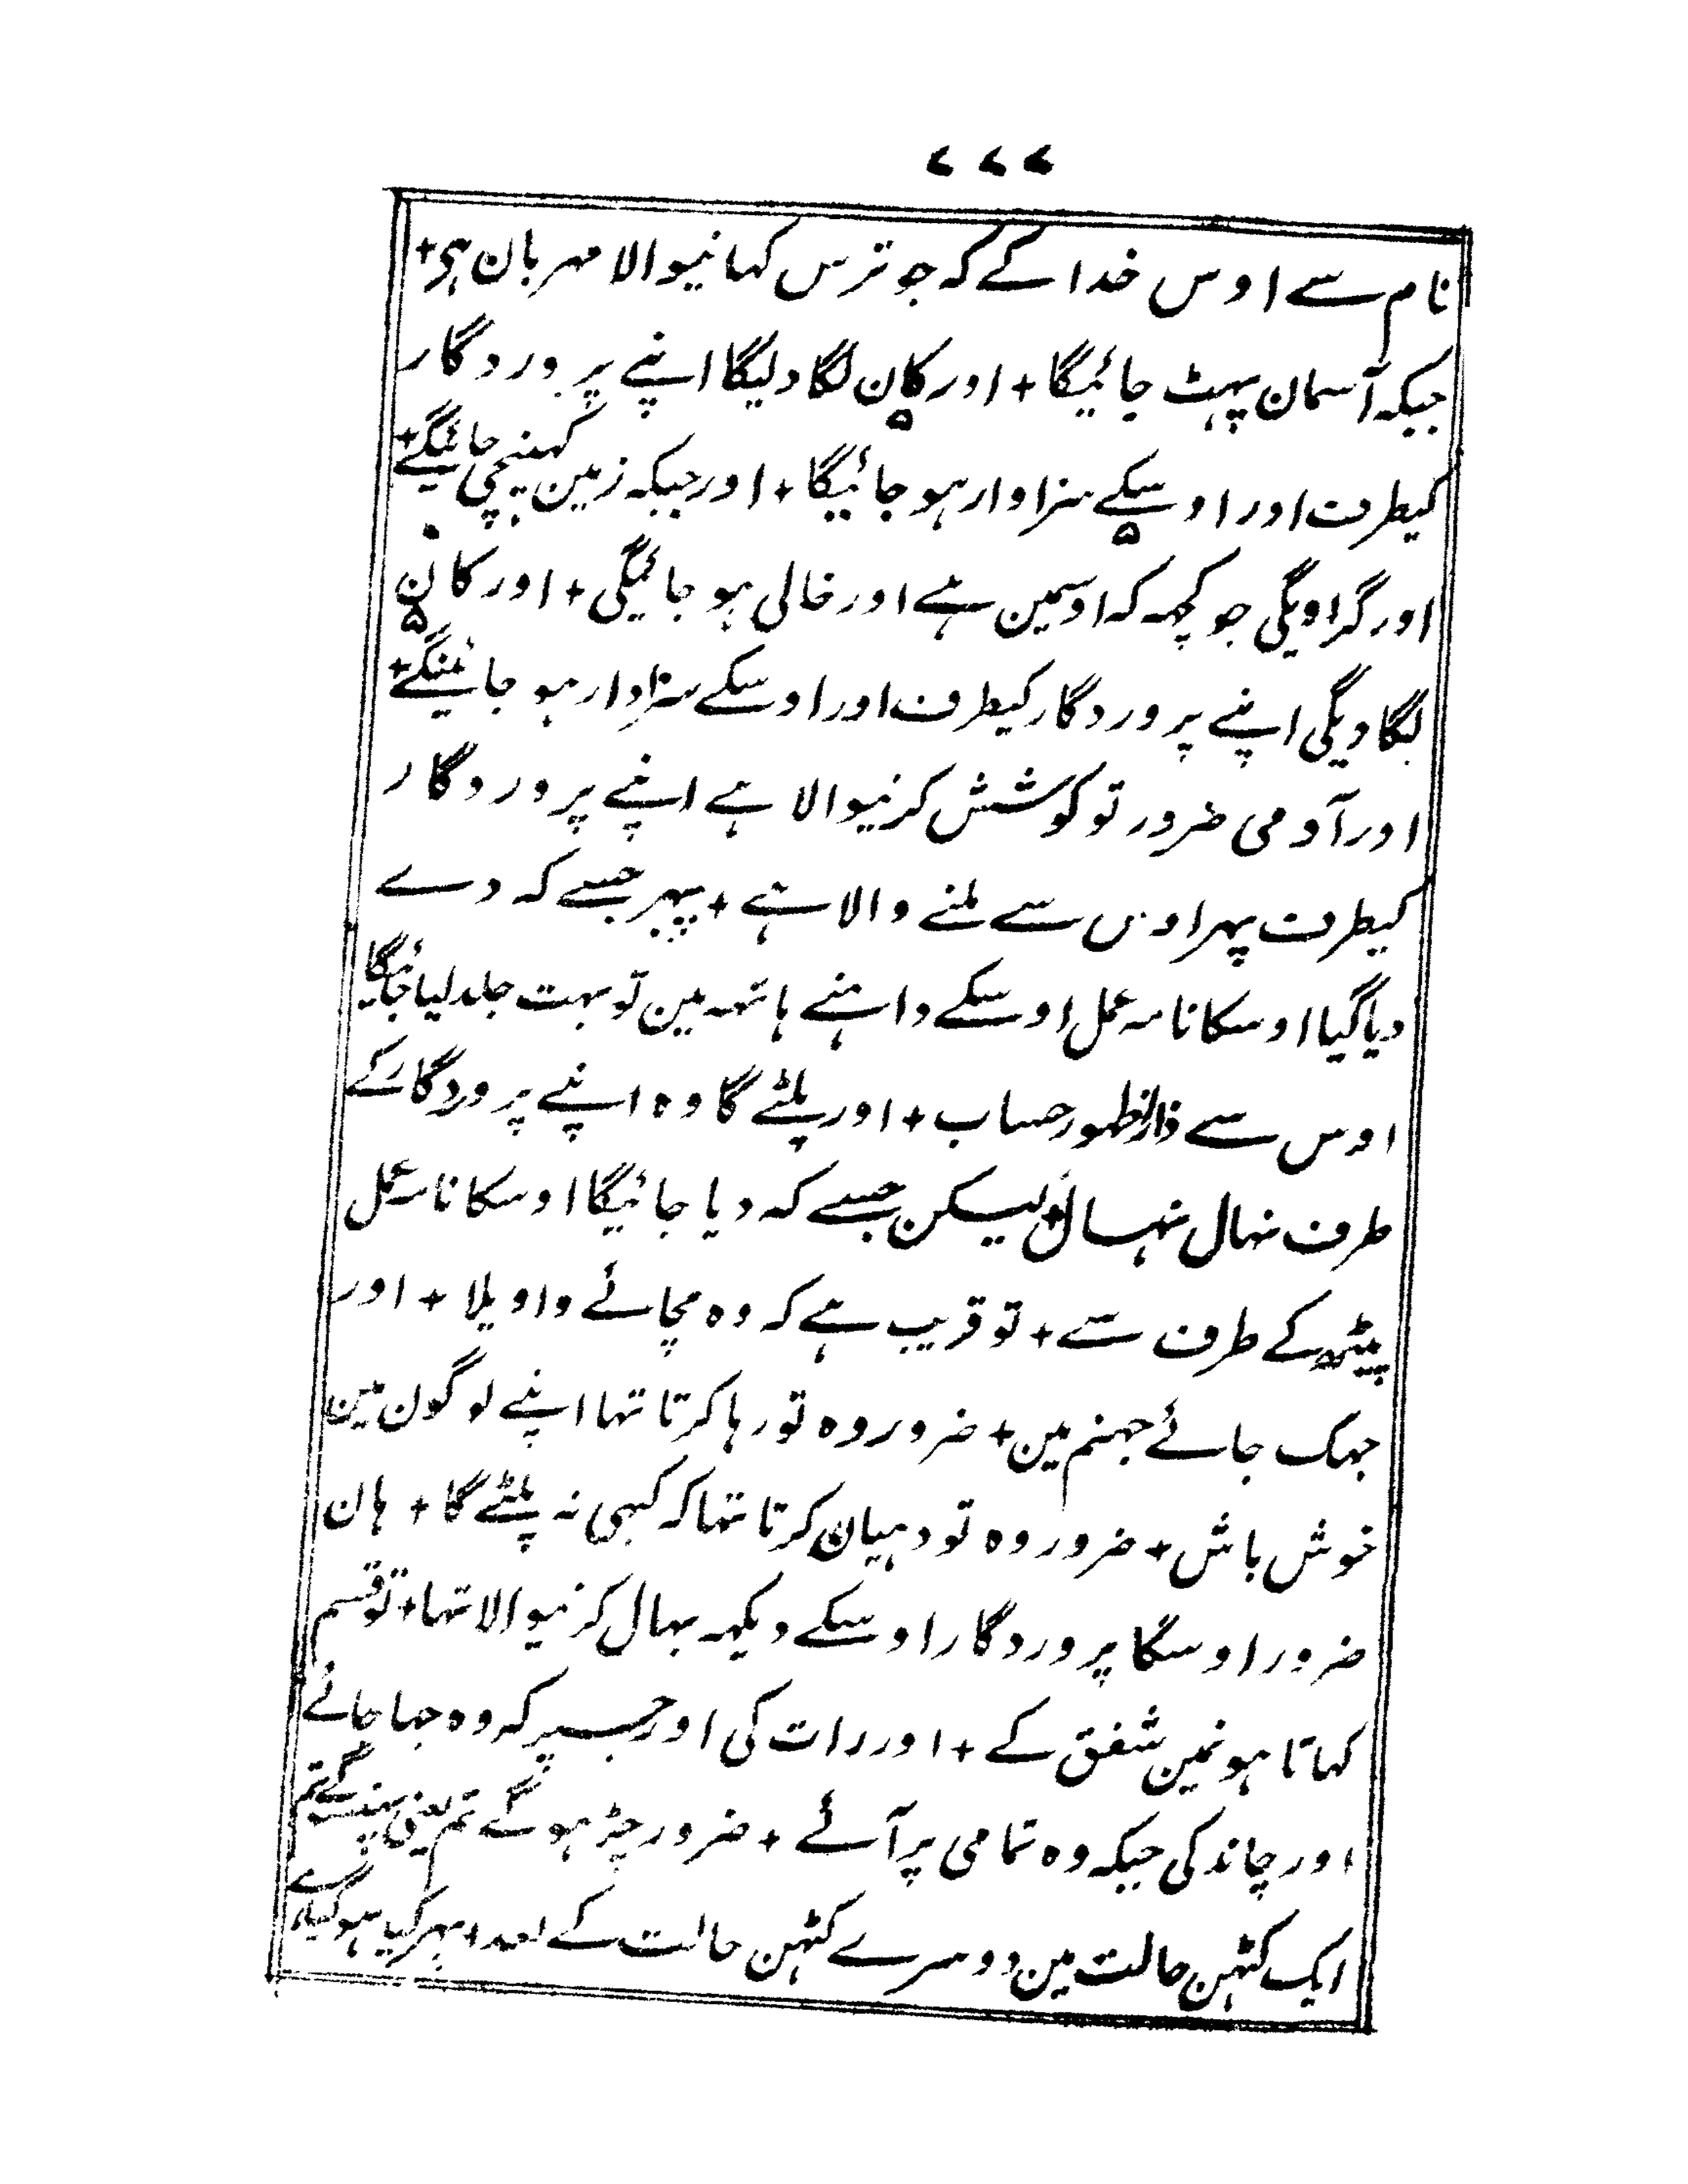 ۷۷۷
نام سے اوس خدا کے کہ جو ترس کہانیوالا مہربان ہی +
جبکہ آسمان پہٹ جائیگا + اور کان لگا دلیگا اپنے پروردگار
کیطرف اور اوسکے سزاوار ہو جائیگا + اور جبکہ زمین کہینچی جائیگے +
اور گراویگی جو کچہہ کہ اوسمین ہے اور خالی ہو جائیگی + اور کان
لگا دیگی اپنے پروردگار کیطرف اور اوسکے سزاوار ہو جائینگے +
اور آدمی ضرور تو کوشش کرنیوالا ہے اپنے پروردگار
کیطرف پہر اوس سے ملنے والا ہے + پہر جسے کہ دے
دیا گیا اوسکا نامہ عمل اوسکے داہنے ہاتہہ مین تو بہت جلد لیا جائیگا
اوس سے حساب + اور پلٹے گا وہ اپنے پروردگار کے
طرف نہال نہال + لیکن جسے کہ دیا جائیگا اوسکا نامہ عمل
پیٹھ کے طرف سے + تو قریب ہے کہ وہ مچائے واویلا + اور
جہک جائے جہنم مین + ضرور وہ تو رہا کرتا تہا اپنے لوگون مین
خوش باش + ضرور وہ تو دہیان کرتا تہا کہ کبہی نہ پلٹے گا + ہان
ضرور اوسکا پروردگار اوسکے دیکہہ بہال کرنیوالا تہا + تو قسم
کہاتا ہونمین شفق کے + اور رات کی اور جسپر کہ وہ چہا جائے
اور چاند کی جبکہ وہ تمامی پر آئے + ضرور چڑہو گے تم یعنی پہنسو گے تم
ایک کٹہن حالت مین دوسرے کٹہن حالت کے بعد + پہر کیا ہو گیا ہے